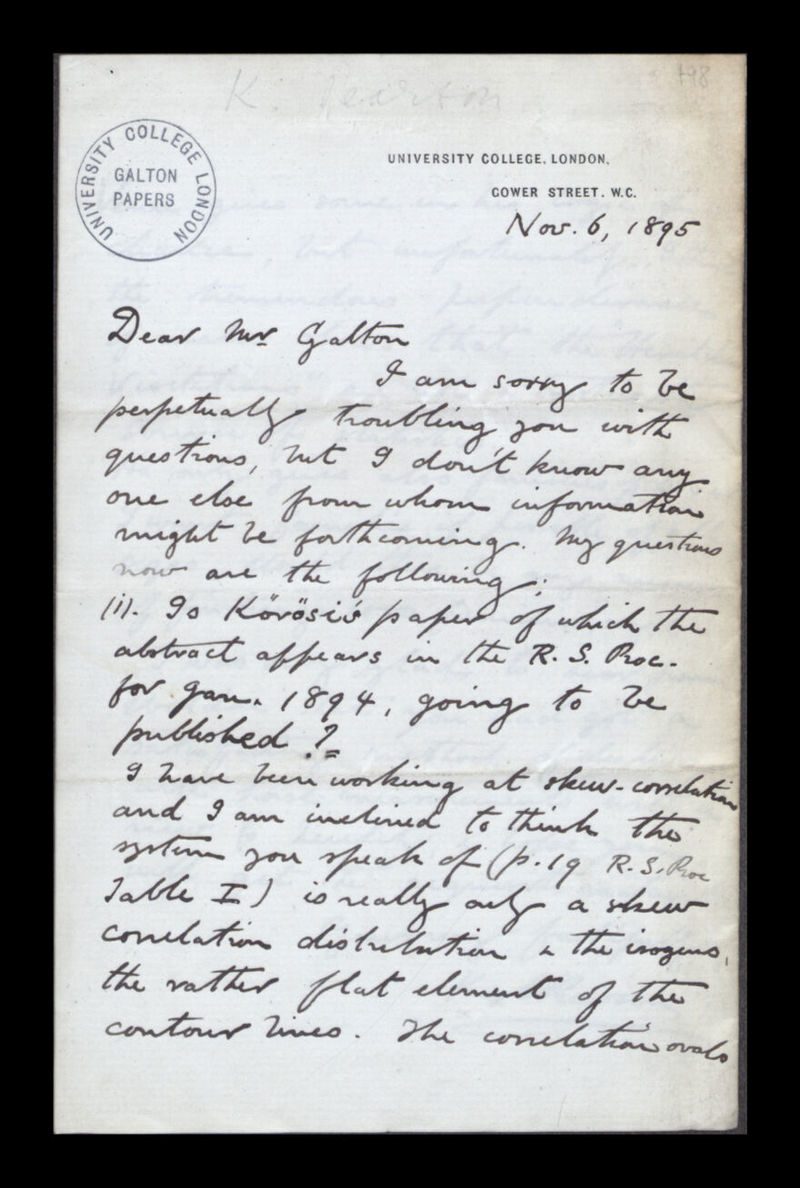 K. Pearson
198
UNIVERSITY COLLEGE LONDON
GALTON
PAPERS
UNIVERSITY COLLEGE, LONDON,
GOWER STREET. W.C.
Nov. 6, 1895
Dear Mr Galton
I am sorry to be
perpetually troubling you with
questions, but I don't know any
one else from whom information
might be forthcoming. My questions
now are the following:
(i). Is Körösi's paper of which the
abstract appears in the R. S. Proc.
for Jan. 1894, going to be
published ?
I have been working at skew-correlation
and I am inclined to think the
system you speak of (p. 19 R. S. Proc
Table I) is really only a skew
correlation distribution & the isogens,
the rather flat element of the
contour lines. The correlation ovals